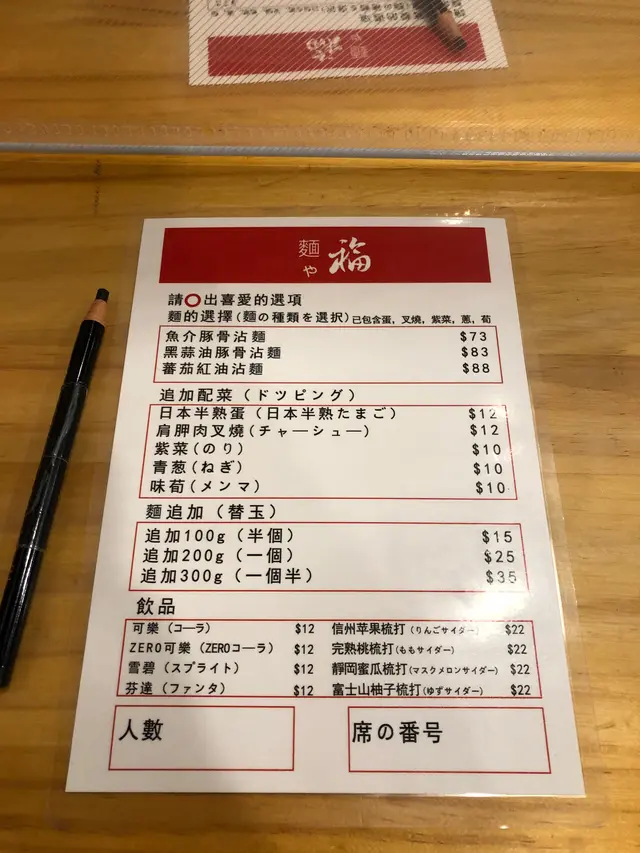 麵や 福
請〇出喜愛的選項
麵的選擇(麵の種類を選択)已包含蛋,叉燒,紫菜,蔥,荀
魚介豚骨沾麵 $73
黑蒜油豚骨沾麵 $83
蕃茄紅油沾麵 $88
追加配菜(ドツピング)
日本半熟蛋(日本半熟たまご) $12
肩胛肉叉燒(チャーシュー) $12
紫菜(のり) $10
青葱(ねぎ) $10
味荀(メンマ) $10
麵追加(替玉)
追加100g(半個) $15
追加200g(一個) $25
追加300g(一個半) $35
飲品
可樂(コーラ) $12 信州苹果梳打(りんごサイダー) $22
ZERO可樂(ZEROコーラ) $12 完熟桃梳打(ももサイダー) $22
雪碧(スプライト) $12 靜岡蜜瓜梳打(マスクメロンサイダー) $22
芬達(ファンタ) $12 富士山柚子梳打(ゆずサイダー) $22
人數 席の番号